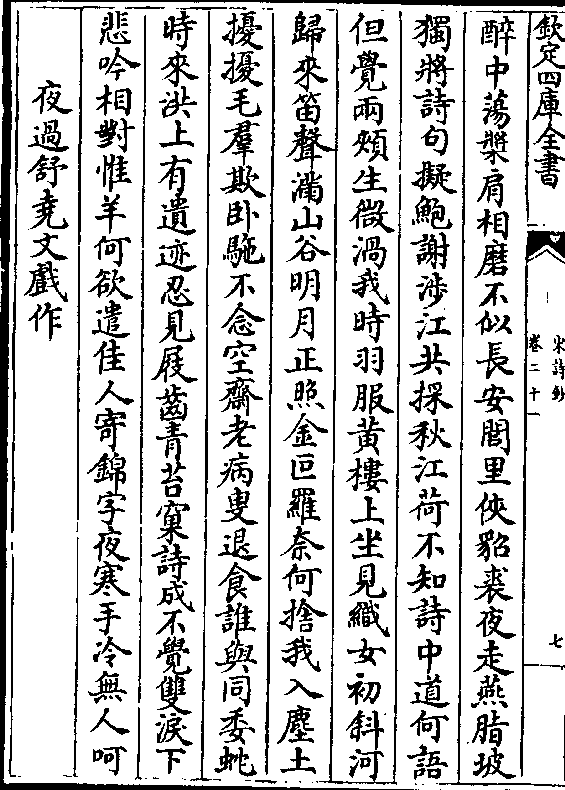 欽定四庫全書
宋詩鈔
卷二十一
七
醉中蕩槳肩相磨不似長安閭里俠貂裘夜走燕脂坡
獨將詩句擬鮑謝涉江共採秋江荷不知詩中道何語
但覺兩頰生微渦我時羽服黃樓上坐見織女初斜河
歸來笛聲滿山谷明月正照金叵羅奈何捨我入塵土
擾擾毛羣欺卧駞不念空齋老病叟退食誰與同委蛇
時來洪上有遺迹忍見屐齒青苔窠詩成不覺雙淚下
悲吟相對惟羊何欲遣佳人寄錦字夜寒手冷無人呵
夜過舒堯文戲作